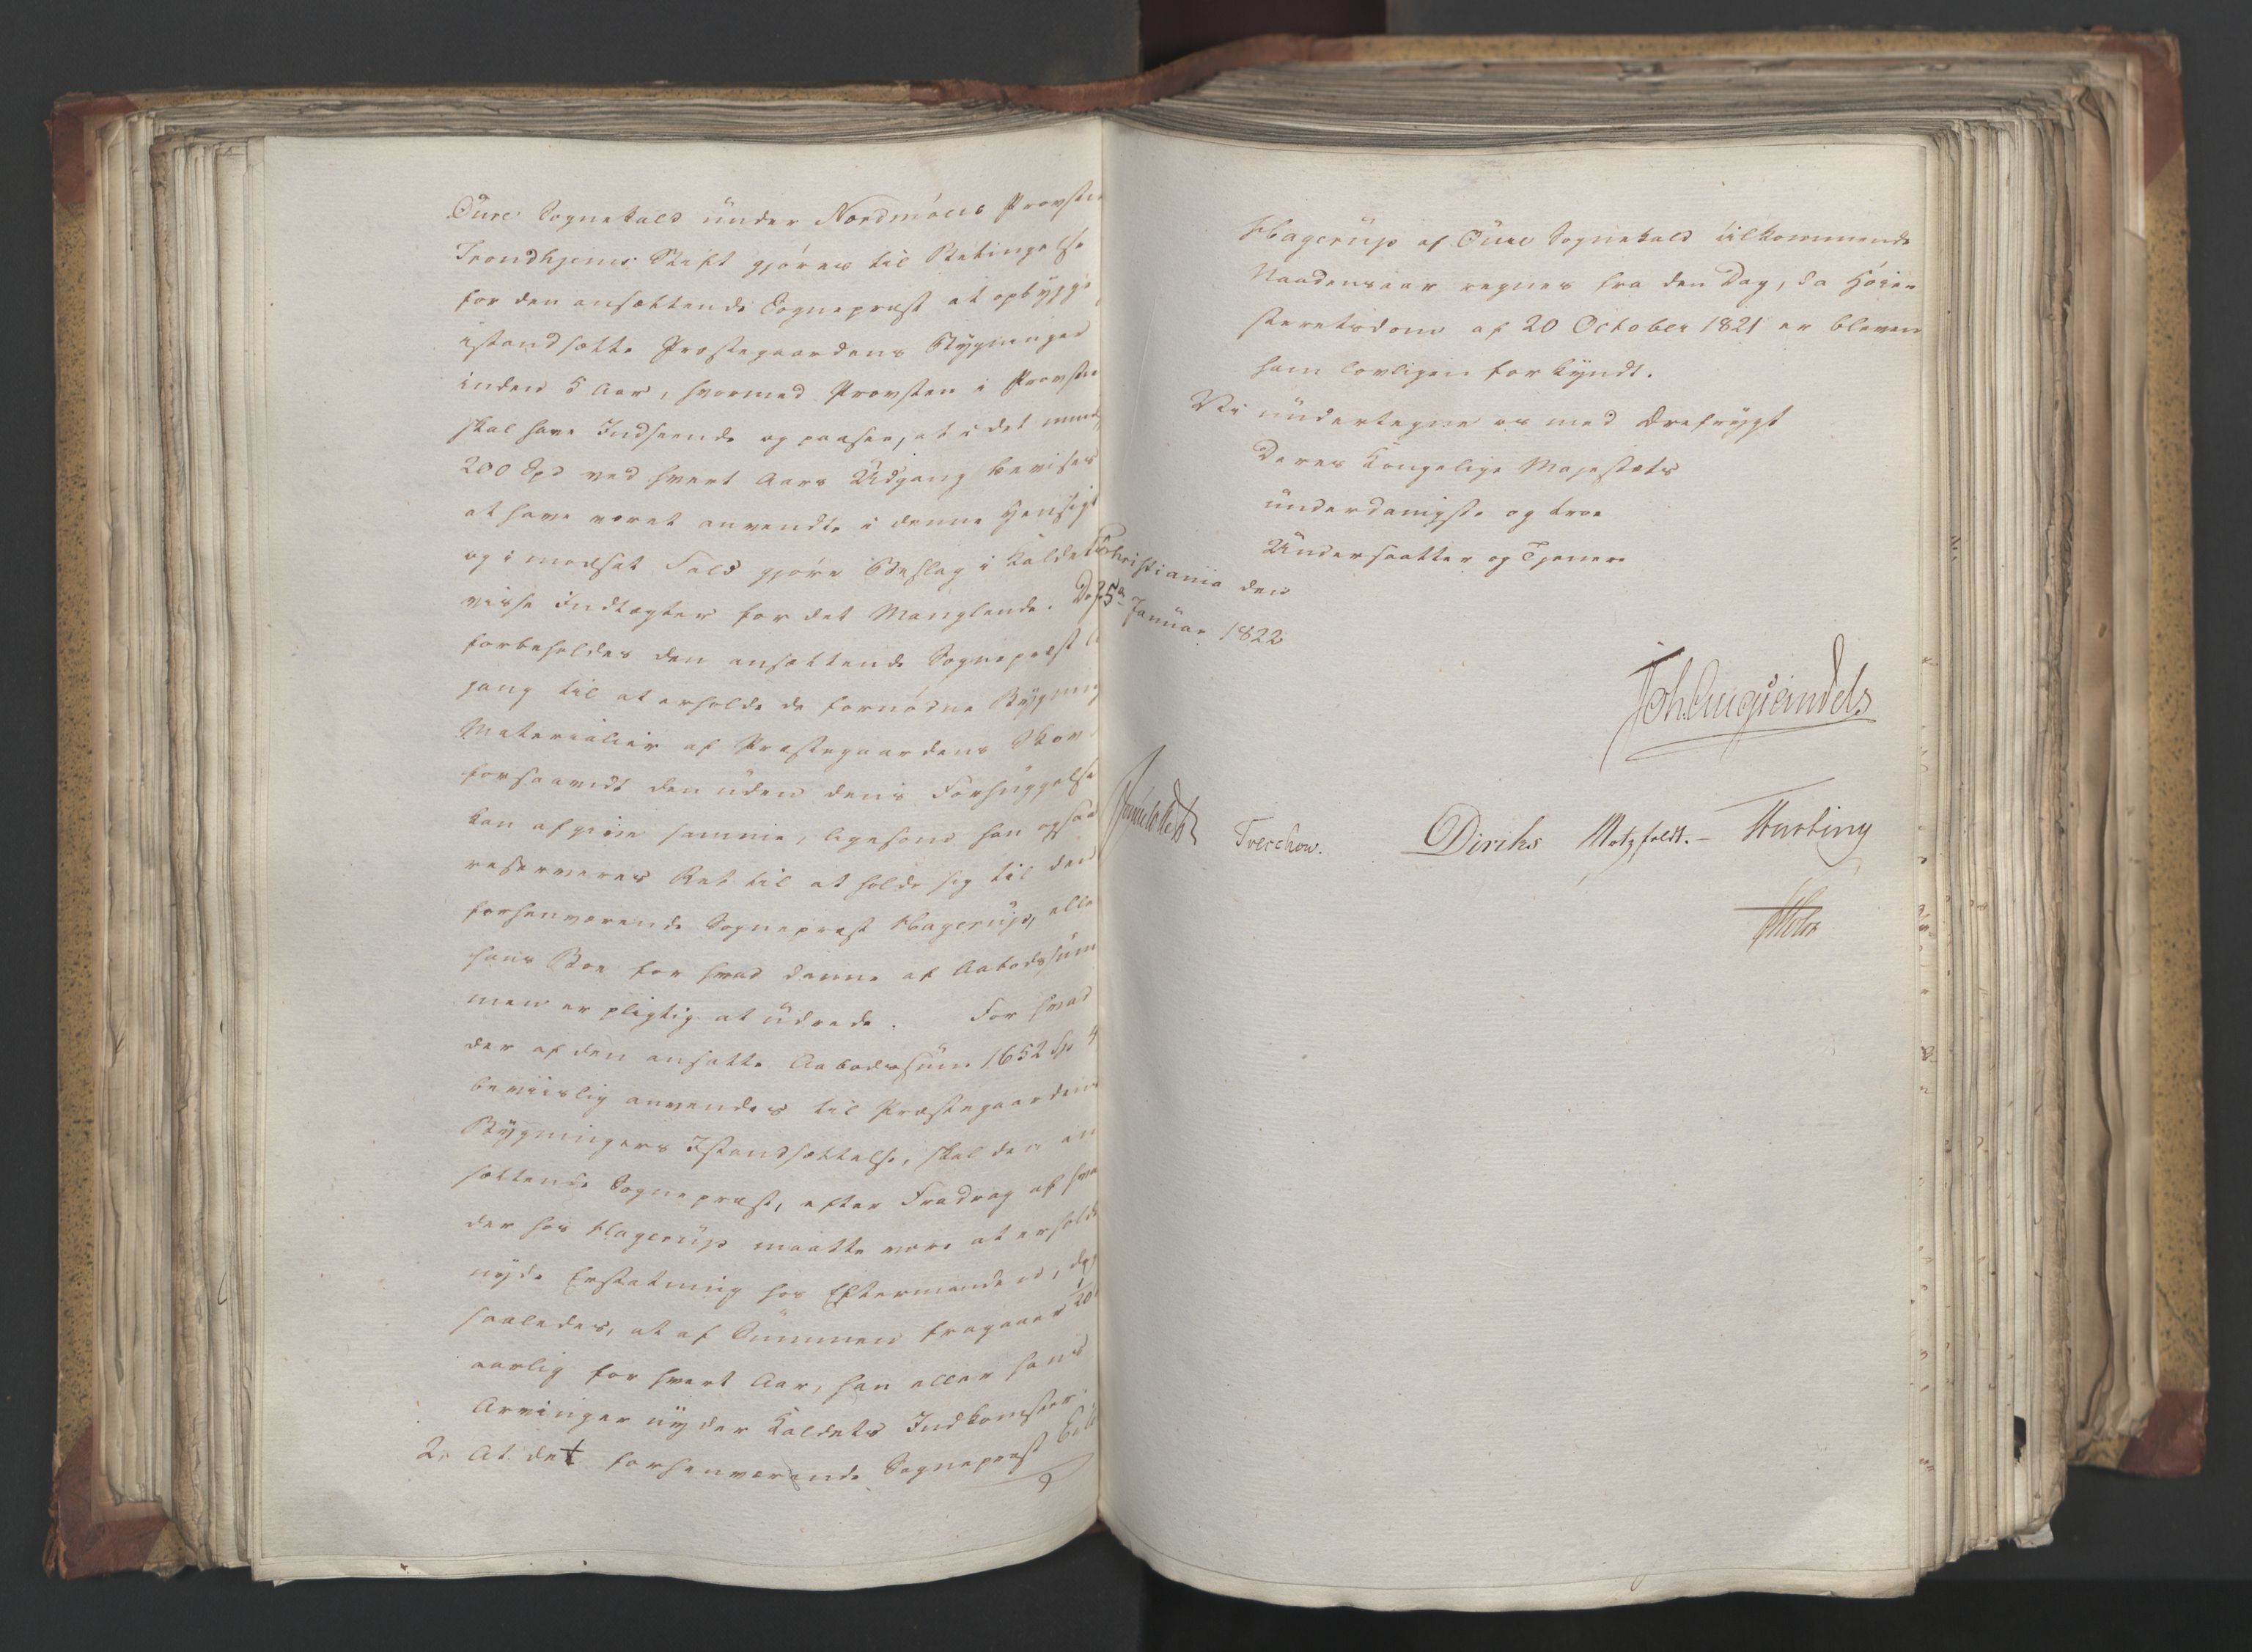 Öure Sognekald under Nordmøers Provstie
Trondhjems Stift gjøres til Betingelse
for den ansættende Sognepræst at opbygge
istandsætte Præstegaardens Bygninger
inden 5 Aar, hvormed Provsten i Provstie
skal have Indseende og paasee, at i det mind
200 Spd ved hvert Aars Udgang bevises
at have været anvendte i denne Hensigt
og i modsat Fald gjøre Beslag i Kaldets
visse Indtægter for det Manglende. Dog
forbeholdes den ansættende Sognepræst A
gang til at erholde de fornødne Bygning
Materialier af Præstegaardens Skov
forsaavidt den uden dens Forhuggelse
kan afgive samme, ligesom han ogsaa
reserveres Ret til at holde sig til den
forhenværende Sognepræst Hagerup, elle
hans Boe for hvad denne af Aabodssum
men er pligtig at udrede. For hvad
der af den ansatte Aabodssum 1652 Sp 4
beviislig anvendes til Præstegaardens
Bygningers Istandsættelse, skal den an
sættende Sognepræst, efter Fradrag af hva
der hos Hagerup maatte være at erholde
nyde Erstatning hos Eftermanden, dog
saaledes, at af Summen fragaaer 1/20
aarlig for hvert Aar, han eller hans
Arvinger nyder Kaldets Indkomster.
2. At det forhenværende Sognepræst
Hagerup af Öure Sognekald tilkommende
Naadensaar regnes fra den Dag, da Høie-
steretsdom af 20 October 1821 er bleven
ham lovligen forkyndt.
Vi undertegne os med Ærefrygt
Deres Kongelige Majestæts
underdanigste og troe
Undersaatter og Tjenere
Christiania den
25 Januar 1822
Joh. Aug Sandels
Treschow.
Diriks
Motzfeldt.